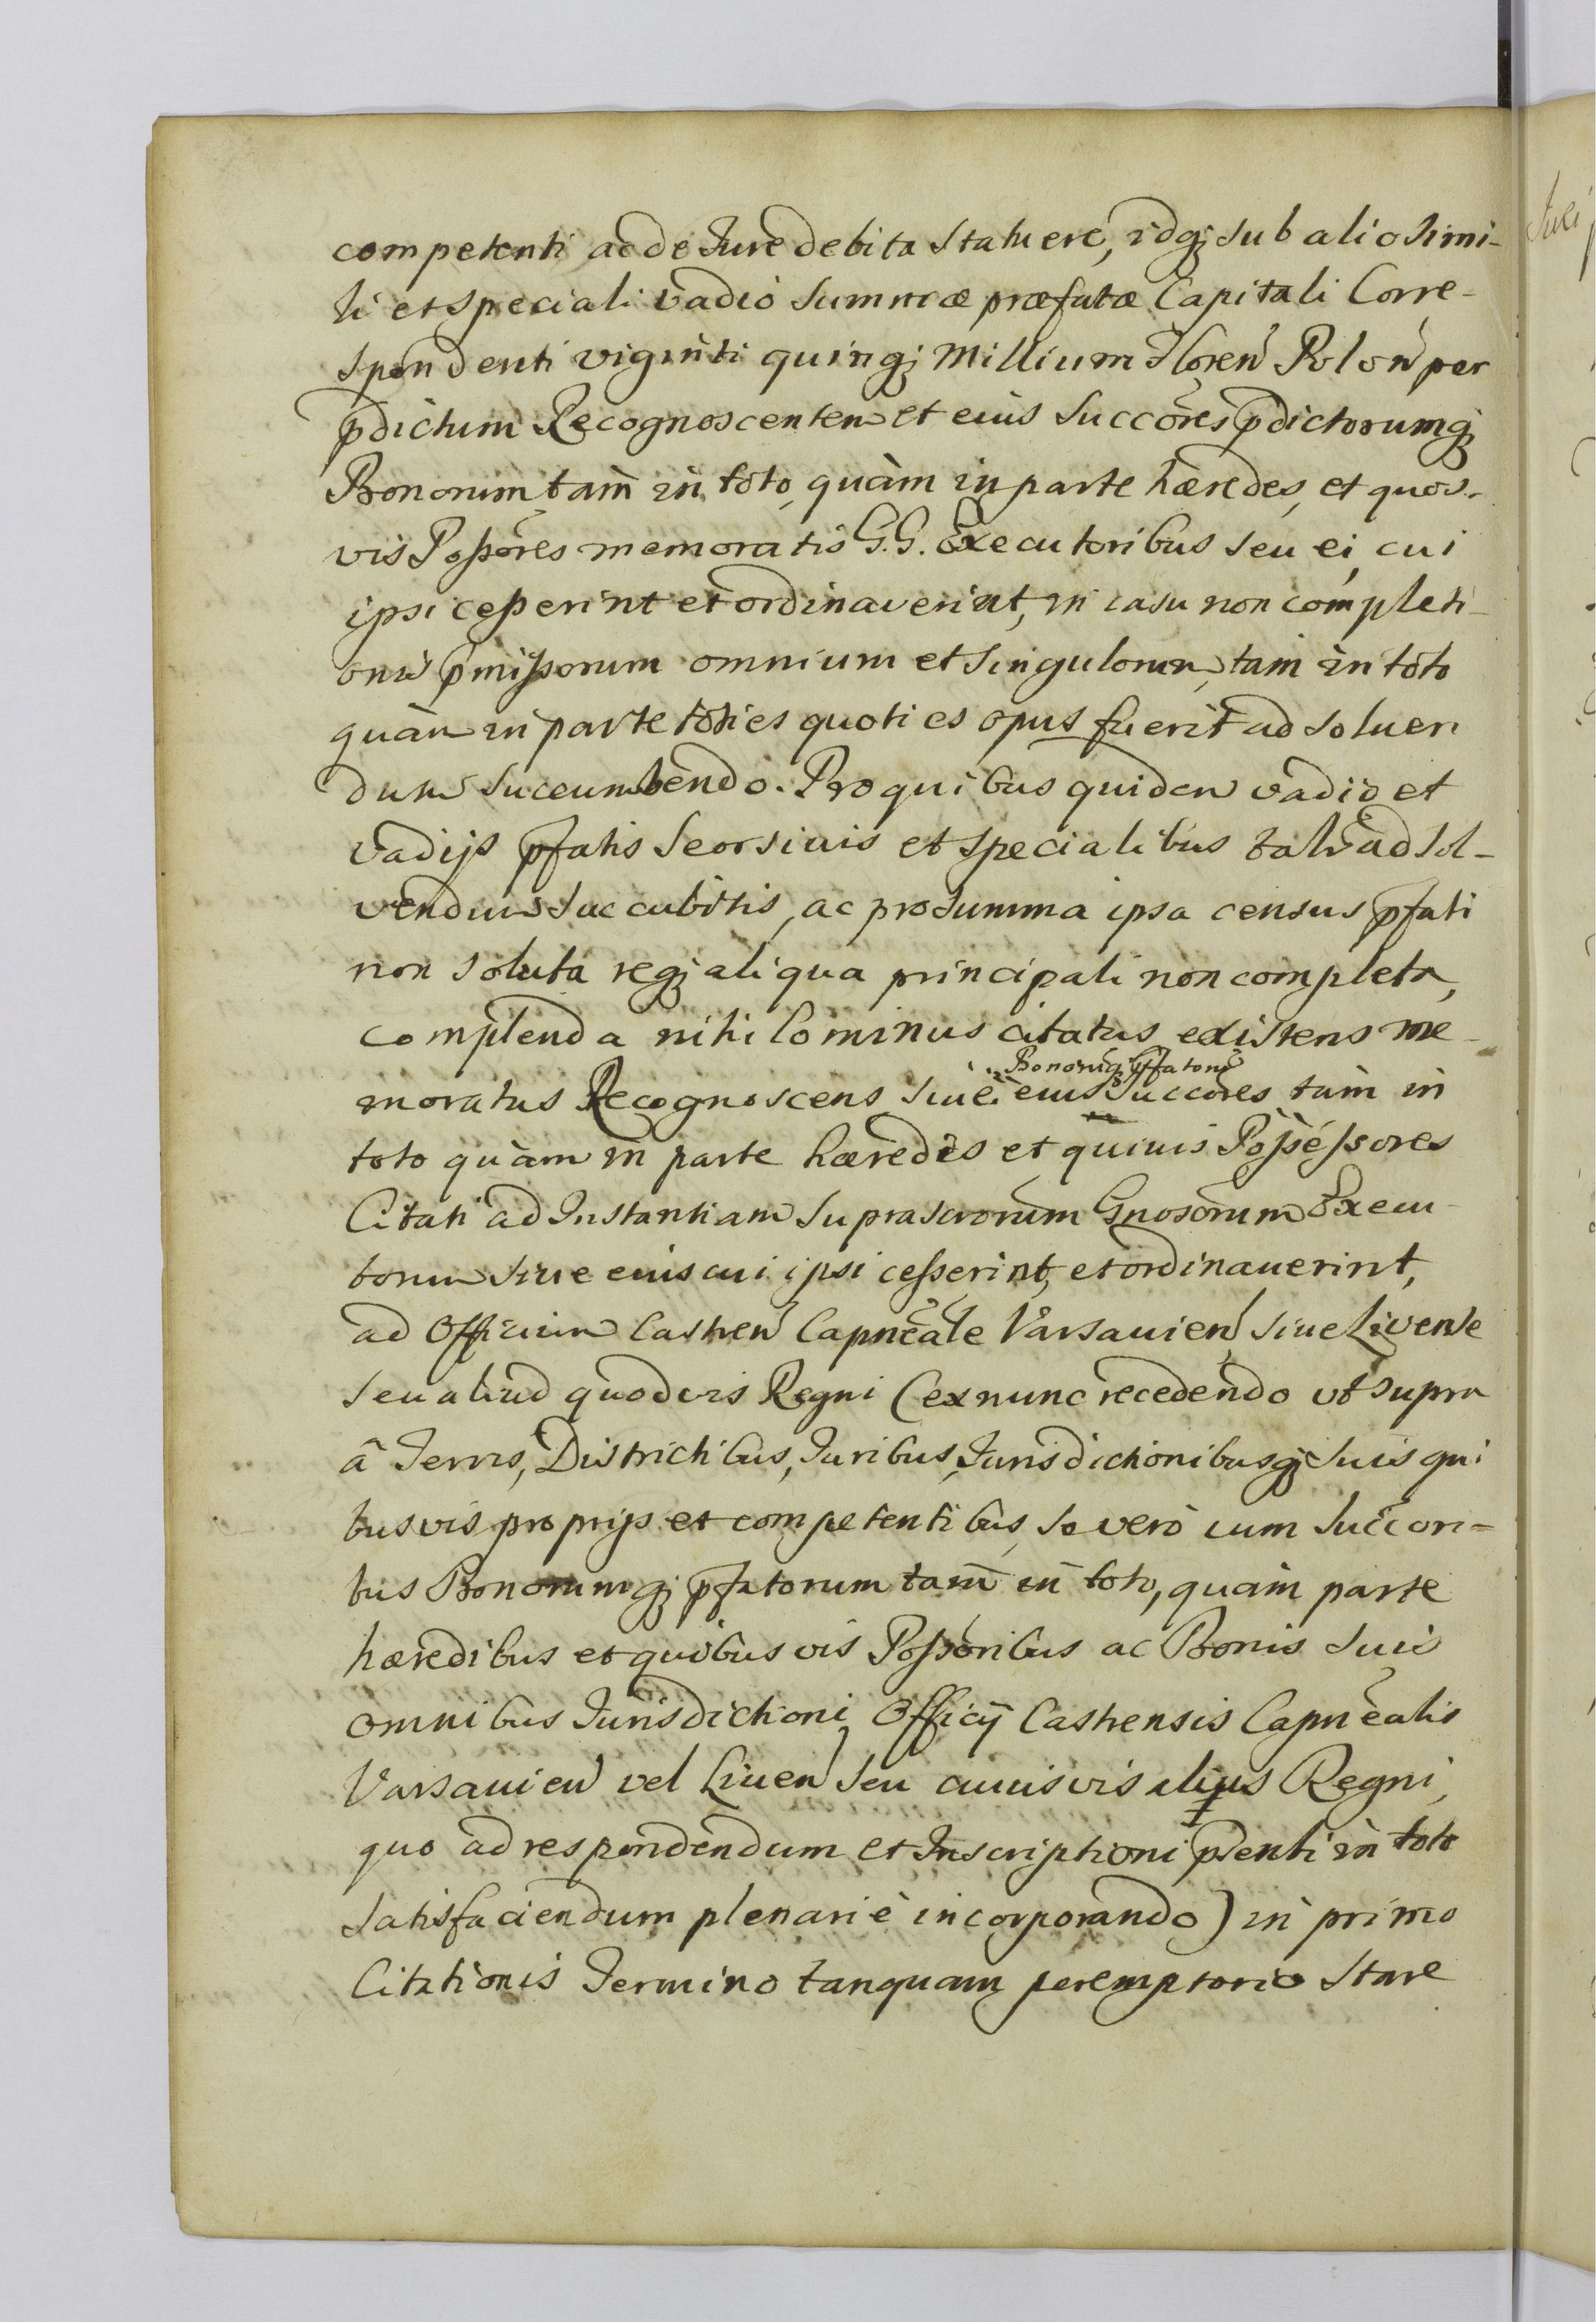 competenti ac de Jure debita statuere, idq; sub alio simi-
li et speciali vadio summæ præfatæ Capitali Corre-
spondenti viginti quinq; Millium Floren Polon per
pdictum Recognoscentem et eius Succores pdictorumq;
Bonorum, tam in toto, quàm in parte hæredes, et quos-
vis Possores memoratis G.G. Executoribus seu ei, cui
ipsi cesserint et ordinaverint, in casu non completi-
onis pmissorum omnium et singulorum, tam in toto
quàm in parte toties quoties opus fuerit ad soluen
dum succumbendo. Pro quibus quidem vadio et
vadijs pfatis seorsivis et specialibus talr ad sol-
vendum succubitis, ac pro summa ipsa census pfati
non soluta req; aliqua principali non completa,
complenda nihilominus citatus existens me-
Bonorumq; pffatorum
moratus Recognoscens siue eius Succores tam in
toto quàm in parte hæredes et quiuis Possessores
Citati ad Instantiam suprascrorum Gnosorum Execu-
torum siue eius cui ipsi cesserint, et ordinauerint,
ad Officium Castren Capneale Varsauien, siue Livense
seu aliud quodvis Regni (ex nunc recedendo ut supra
â Terris, Districtibus, Juribus, Jurisdictionibusq; suis qui
busvis proprijs et competentibus, se verò cum Succori=
bus Bonorumq; pfatorum tam in toto, quàm parte
hæredibus et quibusvis Possoribus ac Bonis suis
omnibus Jurisdictioni Officÿ Castrensis Capnealis
Varsauien vel Liuen seu cuiusvis alius Regni,
quo ad respondendum et Inscriptioni psenti in toto
satisfaciendum plenariè incorporando) in primo
Citationis Termino tanquam peremptorio stare